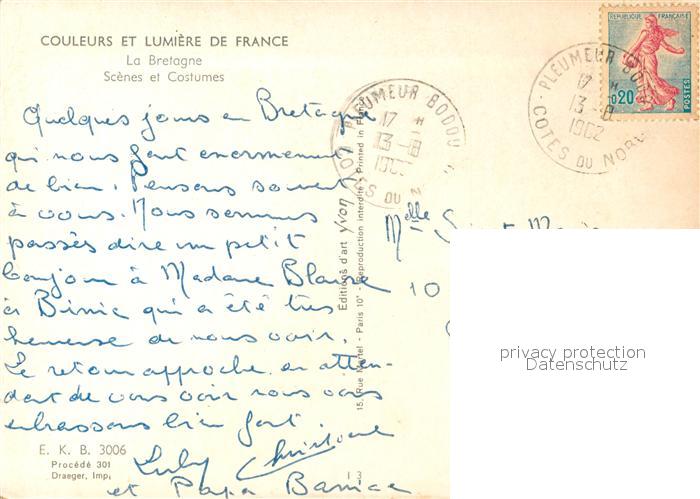 COULEURS ET LUMIÈRE DE FRANCE
La Bretagne
Scènes et Costumes
REPUBLIQUE FRANÇAISE
0,20
POSTES
PLEUMEUR BODOU
17 H
13-8
1962
COTES DU NORD
PLEUMEUR BODOU
17 H
13-8
COTES DU
Quelques jours en Bretagne
qui nous font enormement
de bien. Pensons souvent
à vous. Nous sommes
passés dire un petit
bonjour à Madame Blaise
à Binic qui a été très
heureuse de nous voir.
Le retour approche en atten-
dant de vous voir nous vous
embrassons bien fort.
Christiane
et Papa
Melle
10
Éditions d'art Yvon
15, Rue Martel - Paris 10e - Reproduction interdite - Printed in France
E. K. B. 3006
Procédé 301
Draeger, Imp.
privacy protection
Datenschutz